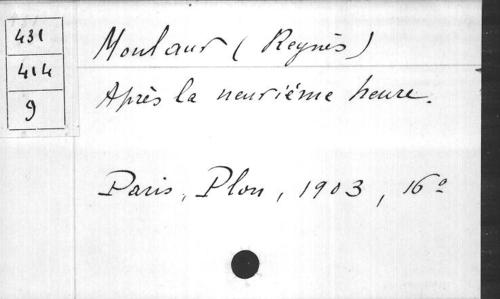 431
414
9
Monlaur (Reynès)
Après la neuvième heure.
Paris, Plon, 1903, 16º